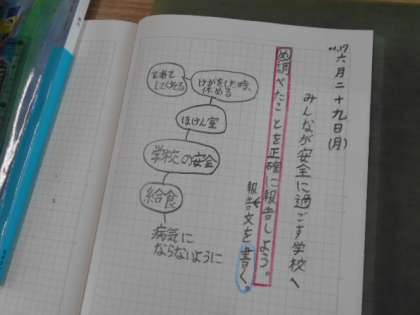 六月二十九日(月)
みんなが安全に過ごす学校へ
め調べたことを正確に報告しよう。
報告文を書く。
けがをした時、
休める
手当て
してくれる
ほけん室
学校の安全
給食
病気に
ならないように